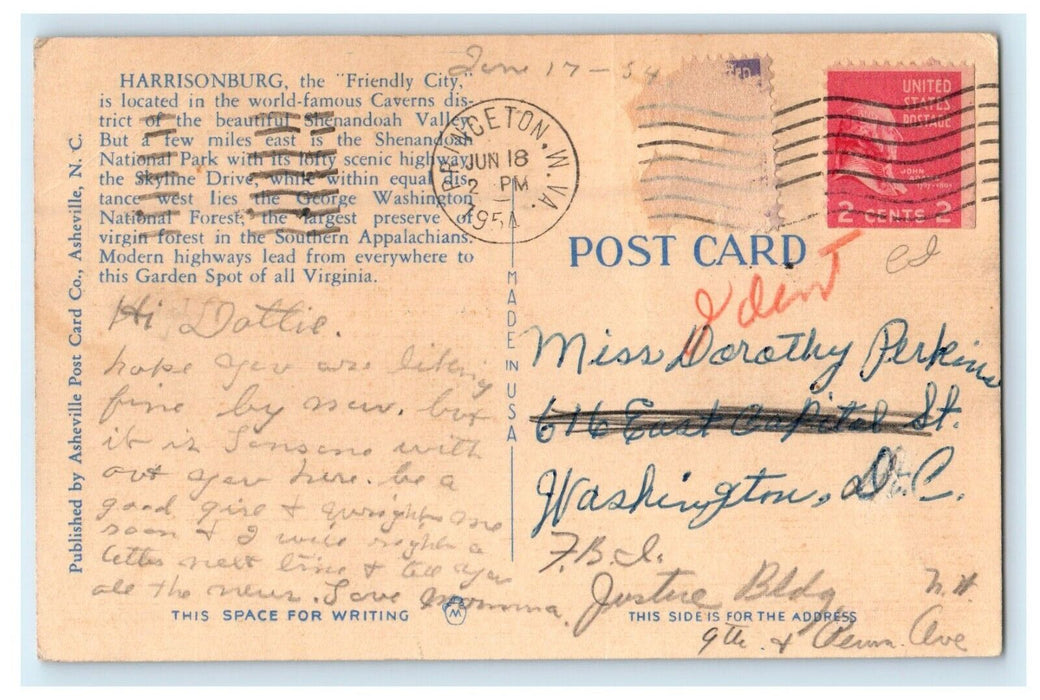 June 17-54
HARRISONBURG, the "Friendly City,"
is located in the world-famous Caverns dis-
trict of the beautiful Shenandoah Valley.
But a few miles east is the Shenandoah
National Park with its lofty scenic highway,
the Skyline Drive, while within equal dis-
tance west lies the George Washington
National Forest, the largest preserve of
virgin forest in the Southern Appalachians.
Modern highways lead from everywhere to
this Garden Spot of all Virginia.
Published by Asheville Post Card Co., Asheville, N. C.
PRINCETON, W. VA.
JUN 18
2 PM
1954
UNITED
STATES
POSTAGE
JOHN
2 CENTS 2
POST CARD
MADE IN USA
Ident
ed
Hi Dottie.
hope you are liking
fine by now. but
it is with
out you here. be a
good girl + wright me
soon + I will wright a
letter next time + tell you
all the news. Love Momma.
Miss Dorothy Perkins
616 East Capitol St.
Washington, D.C.
F.B.I.
Justice Bldg
9th + Penn. Ave
THIS SPACE FOR WRITING
THIS SIDE IS FOR THE ADDRESS